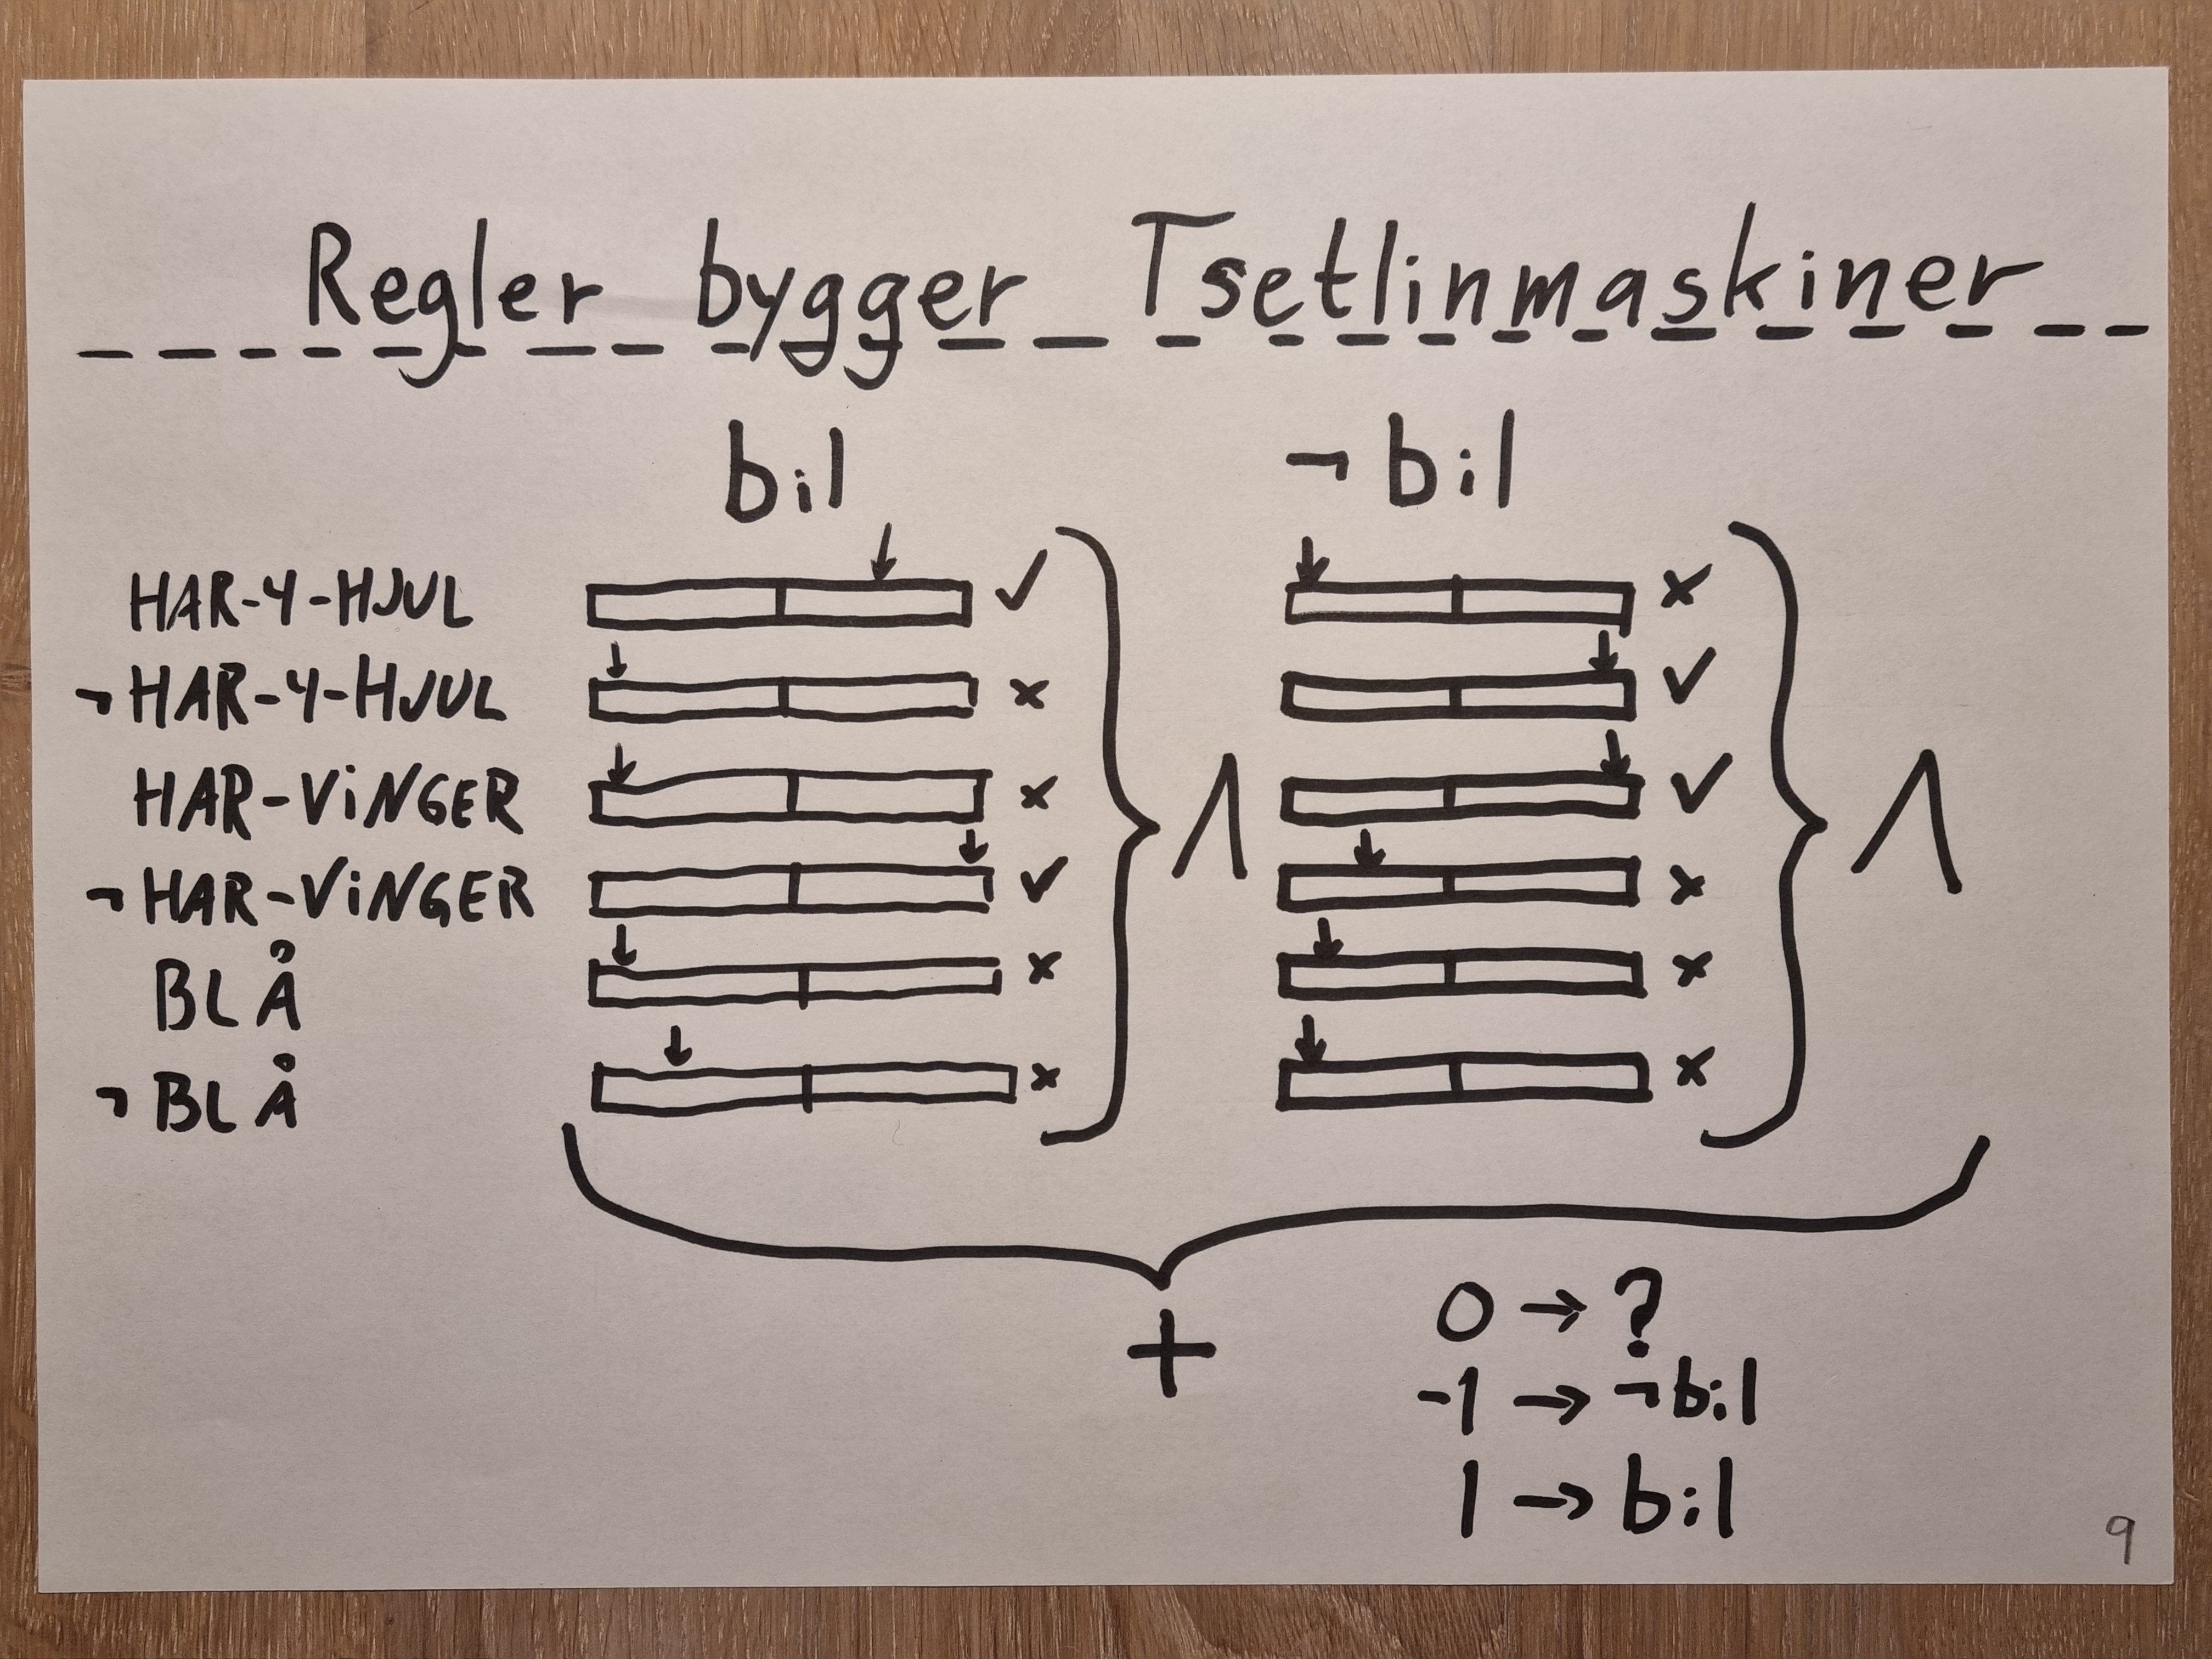 Regler bygger Tsetlinmaskiner
bil ¬bil
HAR-4-HJUL ✓ x
¬HAR-4-HJUL x ✓
HAR-VINGER x ✓
¬HAR-VINGER ✓ x
BLÅ x x
¬BLÅ x x
Λ Λ
+
0 → ?
-1 → ¬bil
1 → bil
9